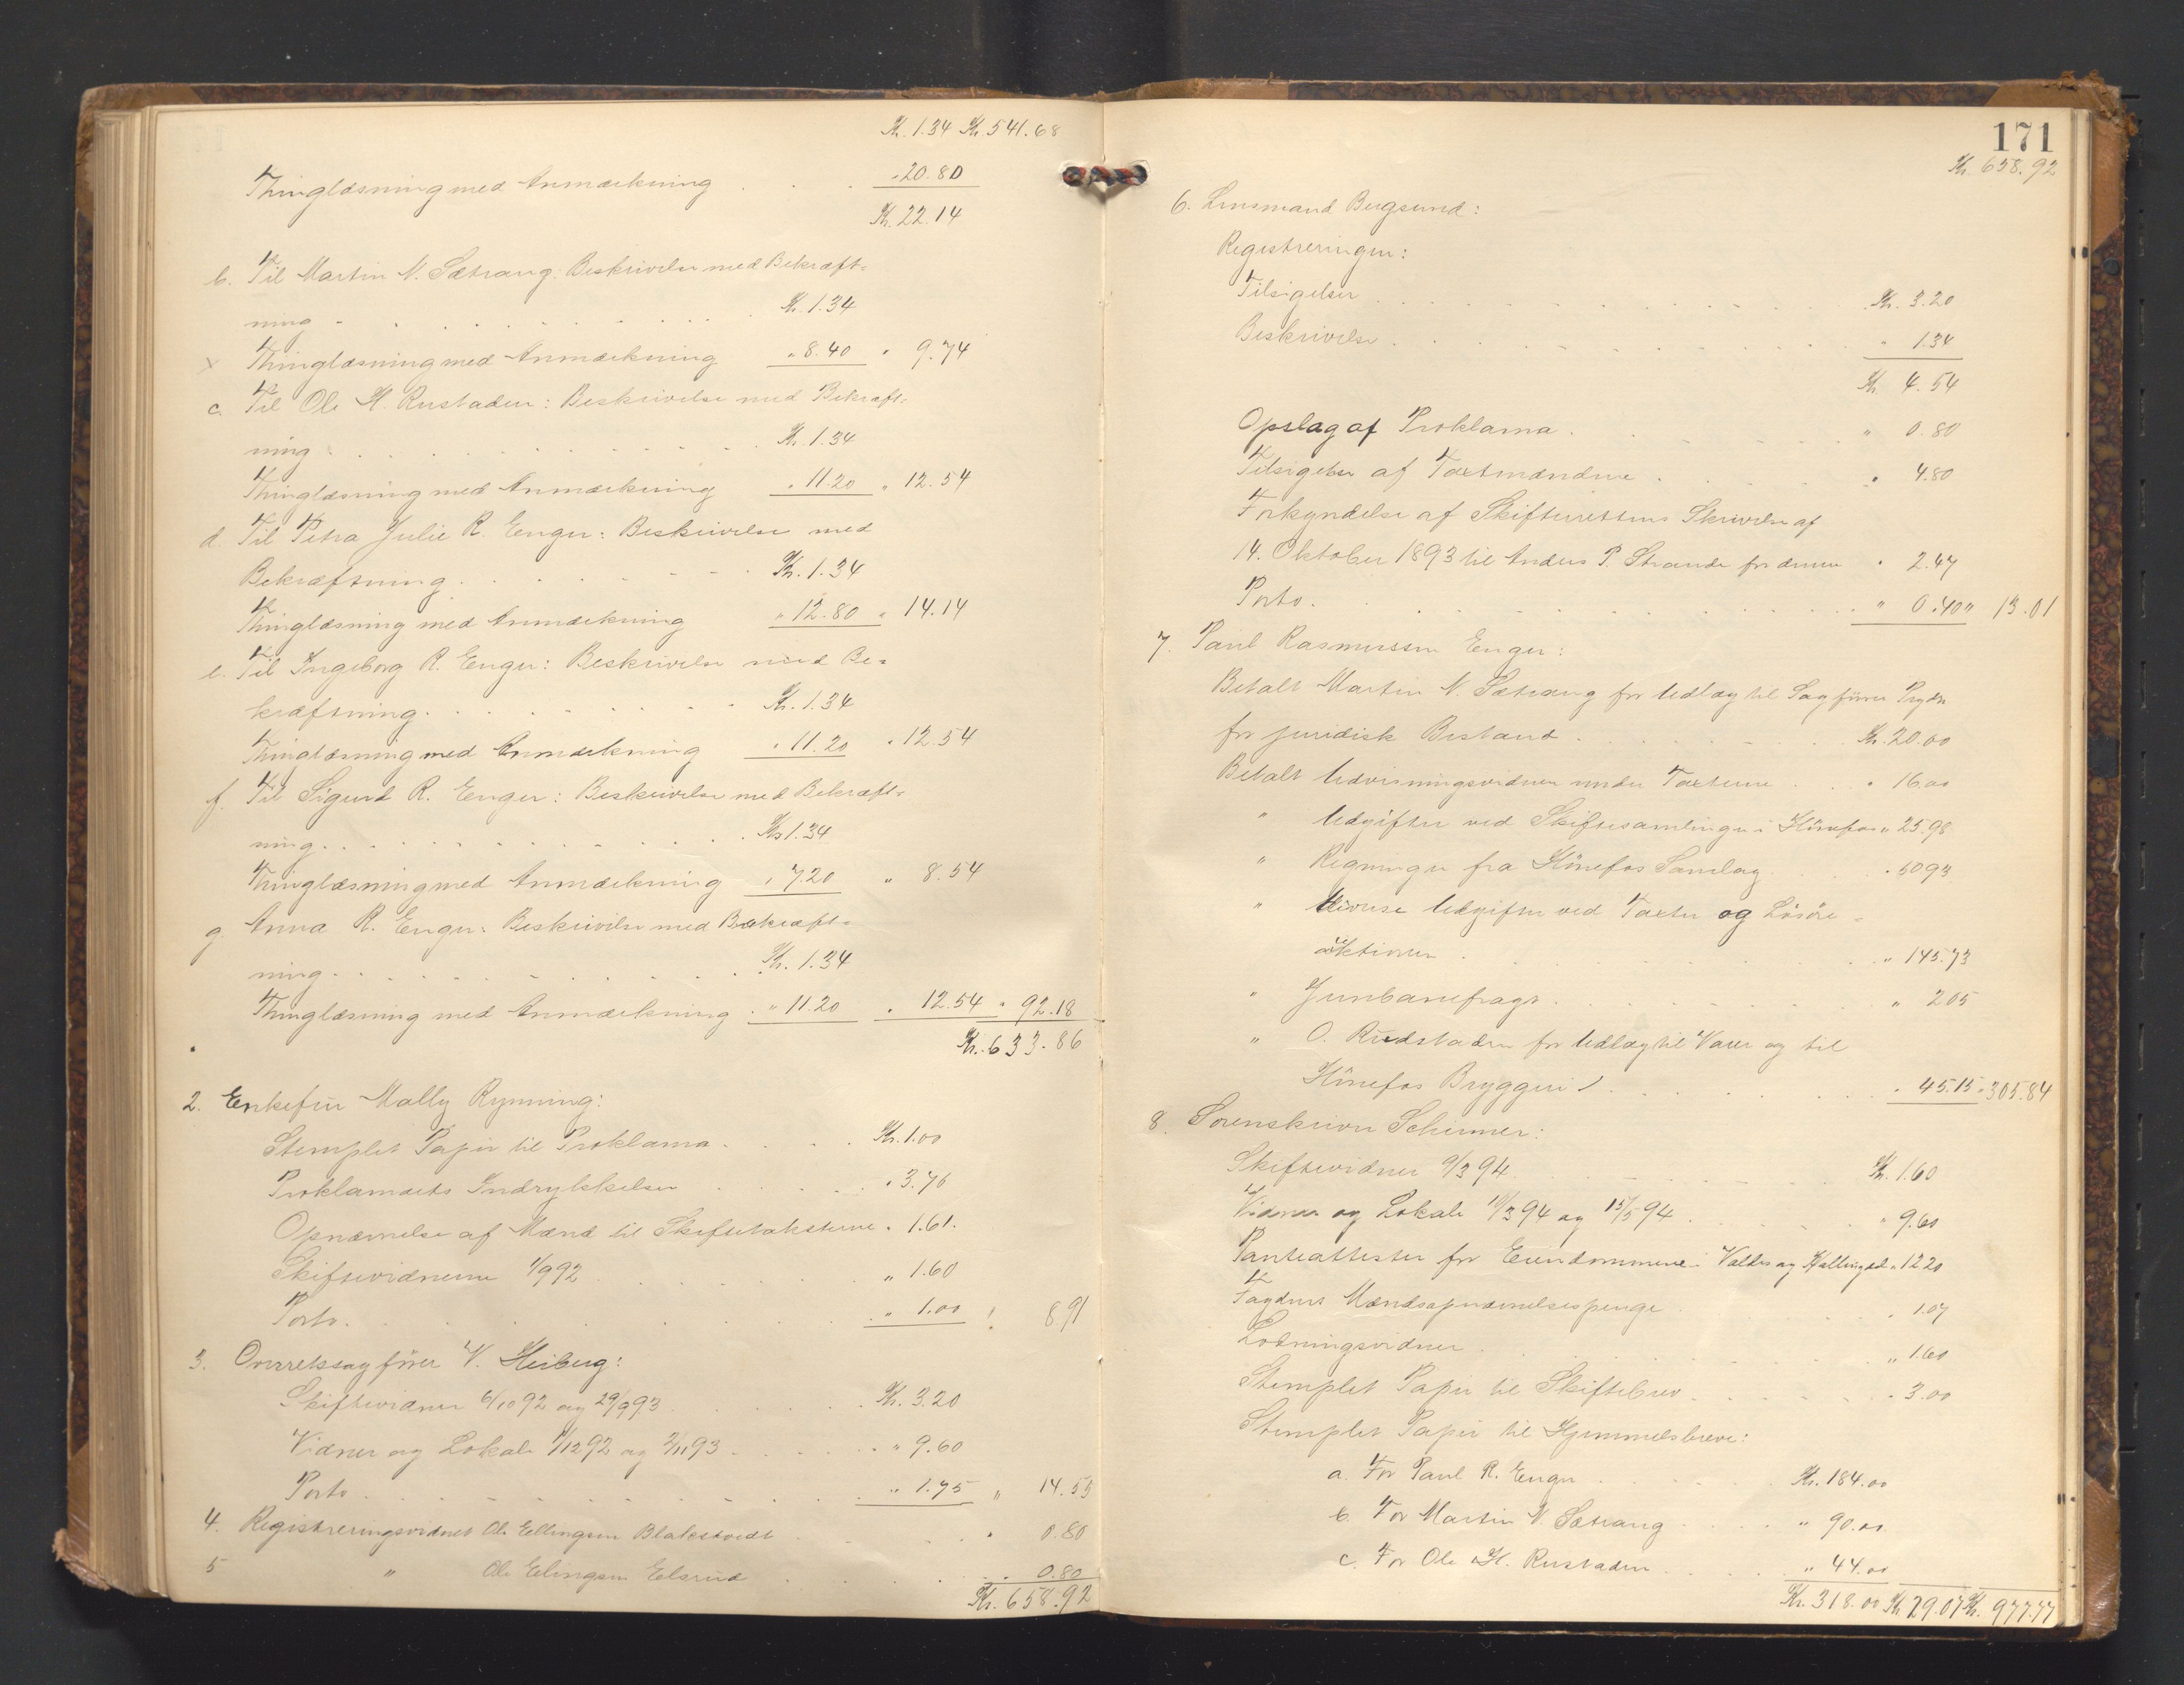 Kr. 1.34 Kr. 541.68
Thinglæsning med Anmærkning . . . " 20.80
Kr. 22.14
b. Til Martin N. Sætrang: Beskrivelse med Bekræft-
ning . . . Kr. 1.34
x Thinglæsning med Anmærkning " 8.40 " 9.74
c. Til Ole H. Rustaden: Beskrivelse med Bekræft-
ning . . . Kr. 1.34
Thinglæsning med Anmærkning " 11.20 " 12.54
d. Til Petra Julie R. Enger: Beskrivelse med
Bekræftning . . . Kr. 1.34
Thinglæsning med Anmærkning " 12.80 " 14.14
e. Til Ingeborg R. Enger: Beskrivelse med Be-
kræftning . . . Kr. 1.34
Thinglæsning med Anmærkning " 11.20 " 12.54
f. Til Sigurd R. Enger: Beskrivelse med Bekræft-
ning . . . Kr. 1.34
Thinglæsning med Anmærkning " 7.20 " 8.54
g Anna R. Enger: Beskrivelse med Bekræft-
ning . . . Kr. 1.34
Thinglæsning med Anmærkning . " 11.20 " 12.54 " 92.18
Kr. 633.86
2. Enkefru Mally Rynning:
Stemplet Papir til Proklama . . . Kr. 1.00
Proklamaets Indrykkelser . . . " 3.70
Opnævnelse af Mænd til Skiftetaksterne " 1.61.
Skiftevidnerne 1/9 92 . . . " 1.60
Porto . . . " 1.00 " 8.91
3. Overretssagfører V. Heiberg:
Skiftevidner 6/10 92 og 29/9 93 . . . Kr. 3.20
Vidner og Lokale 1/12 92 og 2/11 93 . . . " 9.60
Porto . . . " 1.75 " 14.55
4. Registreringsvidnet Ole Ellingsen Blakstvedt . . . " 0.80
5 " Ole Elingsen Elsrud . . . " 0.80
Kr. 658.92
171
Kr. 658.92
6. Lensmand Bergsund:
Registreringen:
Tilsigelser . . . Kr. 3.20
Beskrivelse . . . " 1.34
Kr. 4.54
Opslag af Proklama . . . " 0.80
Tilsigelse af Taxtmændene . . . " 4.80
Forkyndelse af Skifterettens Skrivelse af
14. Oktober 1893 til Anders P. Strande for denne " 2.47
Porto . . . " 0.40 " 13.01
7. Paul Rasmussen Enger:
Betalt Martin N. Sætrang for Udlæg til Sagfører Prydz
for juridisk Bistand . . . Kr. 20.00
Betalt Udvisningsvidner under Taxterne . . . " 16.00
" Udgifter ved Skiftesamlinger i Hønefos " 25.98
" Regninger fra Hønefos Samlag . . . " 50.93
" diverse Udgifter ved Taxter og Løsøre-
auktionen . . . " 145.73
" Jernbanefragt . . . " 2.05
" O. Rudstaden for Udlæg til Varer og til
Hønefos Bryggeri . . . " 45.15 " 305.84
8. Sorenskriver Schirmer:
Skiftevidner 9/3 94 . . . Kr. 1.60
Vidner og Lokale 10/3 94 og 15/5 94 . . . " 9.60
Panteattester for Eiendommene i Valders og Hallingdal " 12.20
Mændsopnævnelsespenge . . . " 1.07
Lodningsvidner . . . " 1.60
Stemplet Papir til Skiftebrev . . . " 3.00
Stemplet Papir til Hjemmelsbreve:
a. For Paul R. Enger . . . Kr. 184.00
b. For Martin N. Sætrang . . . " 90.00
c. For Ole H. Rustaden . . . " 44.00
Kr. 318.00 Kr. 29.07 Kr. 977.77